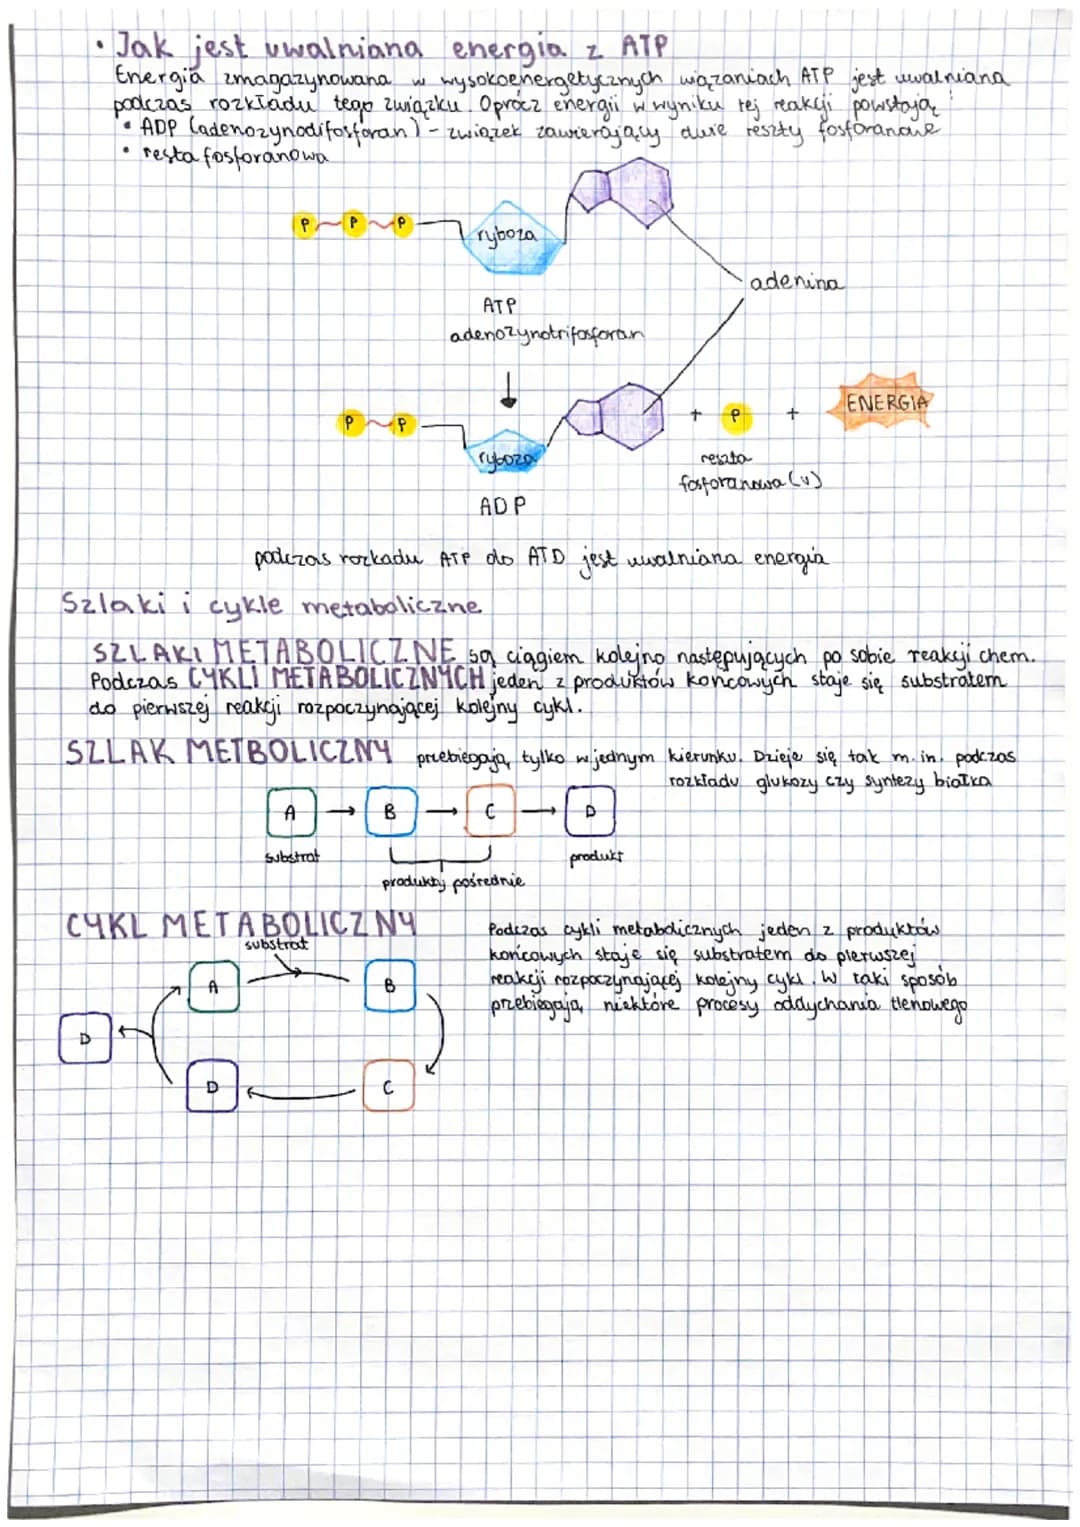 • Jak jest uwalniana energia z ATP
Energia zmagazynowana w wysokoenergetycznych wązaniach ATP jest uwalniana
podczas rozkładu tego związku. Oprócz energii w wyniku tej reakcji powstają:
• ADP (adenozynodifosforan) - związek zawierający dwie reszty fosforanowe
• reszta fosforanowa
P P P
ryboza
adenina
ATP
adenozynotrifosforan
P P
ryboza
+ P + ENERGIA
reszta
fosforanowa (v)
ADP
podczas rozkadu ATP do ATD jest uwalniana energia
Szlaki i cykle metaboliczne
SZLAKI METABOLICZNE są ciągiem kolejno następujących po sobie reakcji chem.
Podczas CYKLI METABOLICZNYCH jeden z produktów końcowych staje się substratem
do pierwszej reakcji rozpoczynającej kolejny cykl.
SZLAK METBOLICZNY przebiegają tylko w jednym kierunku. Dzieje się tak m.in. podczas
rozkładu glukozy czy syntezy białka
A → B → C → D
substrat
produkt
produkty pośrednie
CYKL METABOLICZNY
substrat
A
B
D
D
C
Podczas cykli metabolicznych jeden z produktów
końcowych staje się substratem do pierwszej
reakcji rozpoczynającej kolejny cykl. W taki sposób
przebiegają niektóre procesy oddychania tlenowego